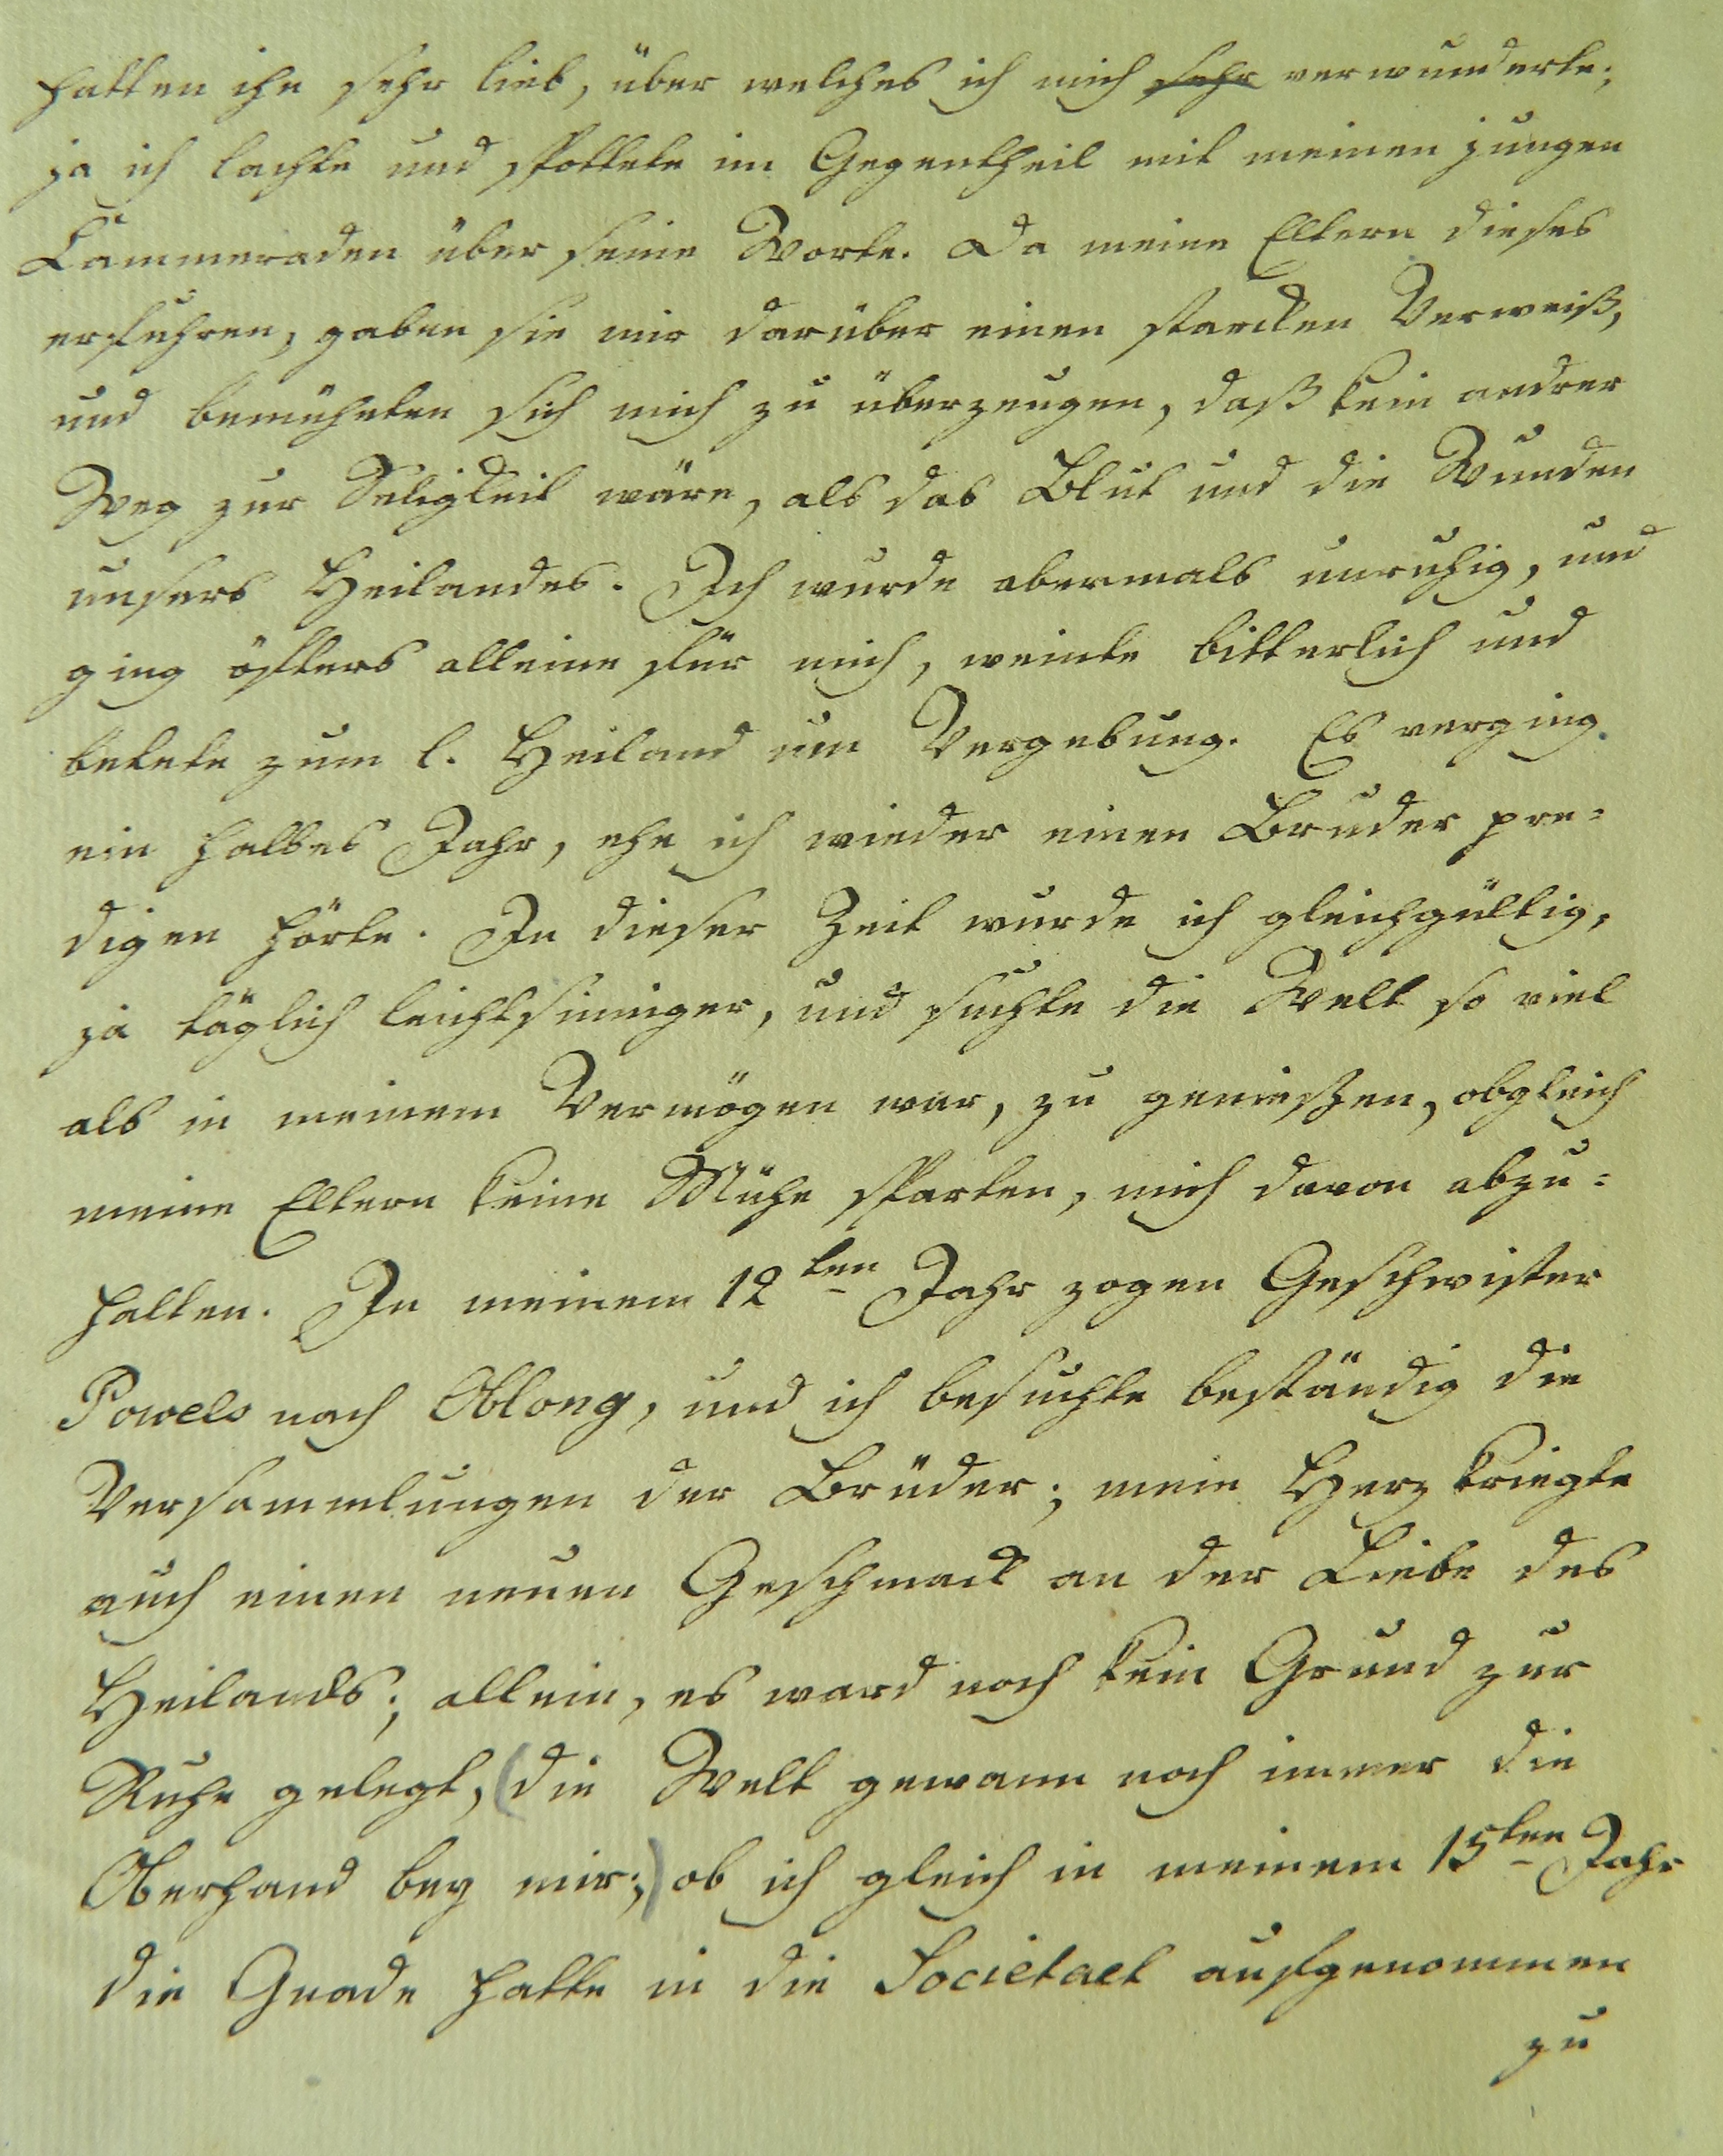 hatten ihn sehr lieb, über welches ich mich sehr verwunderte;
ja ich lachte und spottete im Gegentheil mit meinen jungen
Cammeraden über seine Worte. Da meine Eltern dieses
erfuhren, gaben sie mir darüber einen starcken Verweiß,
und bemüheten sich mich zu überzeugen, daß kein andrer
Weg zur Seligkeit wäre, als das Blut und die Wunden
unsers Heilandes. Ich wurde abermals unruhig, und
ging öfters alleine für mich, weinte bitterlich und
betete zum l. Heiland um Vergebung. Es verging
ein halbes Jahr, ehe ich wieder einen Bruder pre-
digen hörte. In dieser Zeit wurde ich gleichgültig,
ja täglich leichtsinniger, und suchte die Welt so viel
als in meinem Vermögen war, zu genießen, obgleich
meine Eltern keine Mühe sparten, mich davon abzu-
halten. In meinem 12ten Jahr zogen Geschwister
Powels nach Oblong, und ich besuchte beständig die
Versammlungen der Brüder; mein Herz kriegte
auch einen neuen Geschmack an der Liebe des
Heilands; allein, es ward noch kein Grund zur
Ruhe gelegt, (die Welt gewann noch immer die
Oberhand bey mir;) ob ich gleich in meinem 15ten Jahr
die Gnade hatte in die Societaet aufgenommen
zu